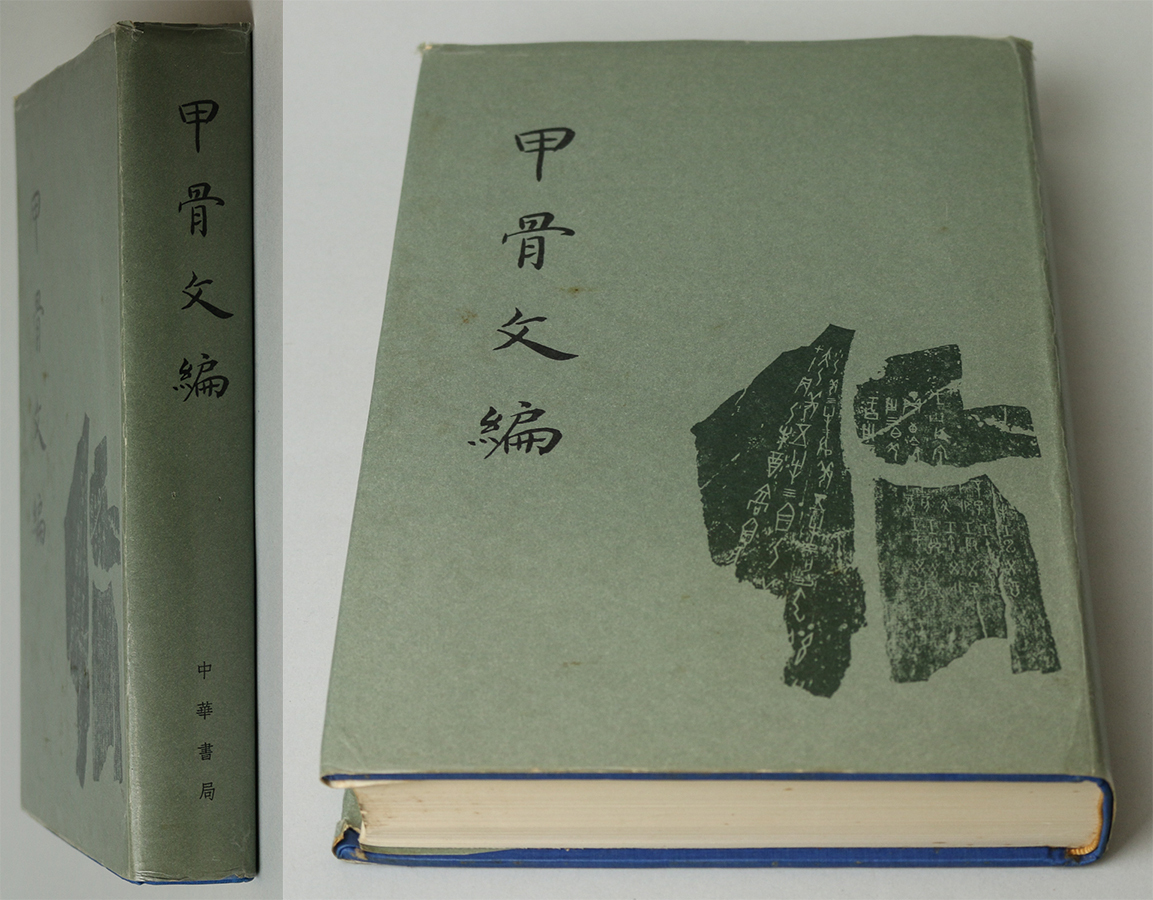 甲骨文編
中華書局
甲骨文編
甲骨文編